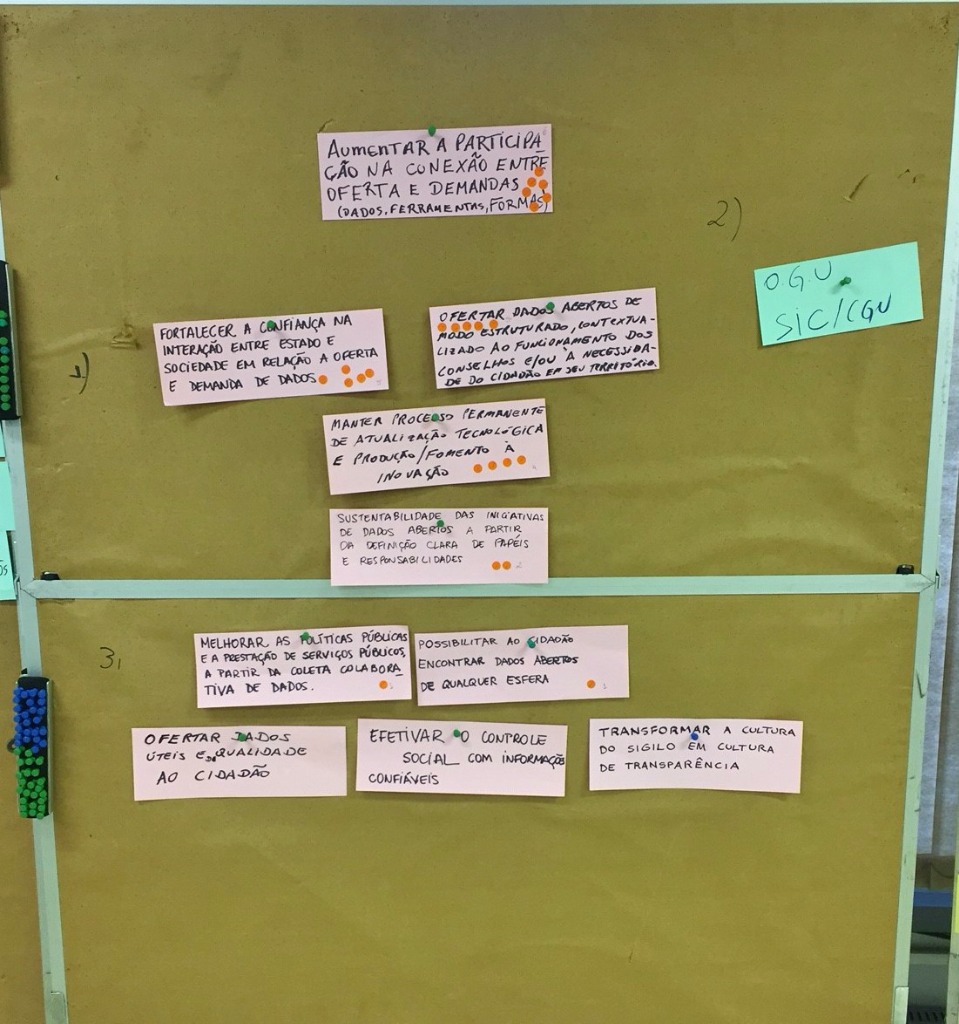 AUMENTAR A PARTICIPA
ÇÃO NA CONEXÃO ENTRE
OFERTA E DEMANDAS
(DADOS, FERRAMENTAS, FORMAS)
2)
O.G.U
SIC/CGU
1)
FORTALECER A CONFIANÇA NA
INTERAÇÃO ENTRE ESTADO E
SOCIEDADE EM RELAÇÃO A OFERTA
E DEMANDA DE DADOS
OFERTAR DADOS ABERTOS DE
MODO ESTRUTURADO, CONTEXTUA-
LIZADO AO FUNCIONAMENTO DOS
CONSELHOS E/OU À NECESSIDA-
DE DO CIDADÃO EM SEU TERRITÓRIO.
MANTER PROCESSO PERMANENTE
DE ATUALIZAÇÃO TECNOLÓGICA
E PRODUÇÃO/FOMENTO À
INOVAÇÃO
SUSTENTABILIDADE DAS INICIATIVAS
DE DADOS ABERTOS A PARTIR
DA DEFINIÇÃO CLARA DE PAPÉIS
E RESPONSABILIDADES
3,
MELHORAR AS POLÍTICAS PÚBLICAS
E A PRESTAÇÃO DE SERVIÇOS PÚBLICOS,
A PARTIR DA COLETA COLABORA-
TIVA DE DADOS.
POSSIBILITAR AO CIDADÃO
ENCONTRAR DADOS ABERTOS
DE QUALQUER ESFERA
OFERTAR DADOS
ÚTEIS E DE QUALIDADE
AO CIDADÃO
EFETIVAR O CONTROLE
SOCIAL COM INFORMAÇÕES
CONFIÁVEIS
TRANSFORMAR A CULTURA
DO SIGILO EM CULTURA
DE TRANSPARÊNCIA